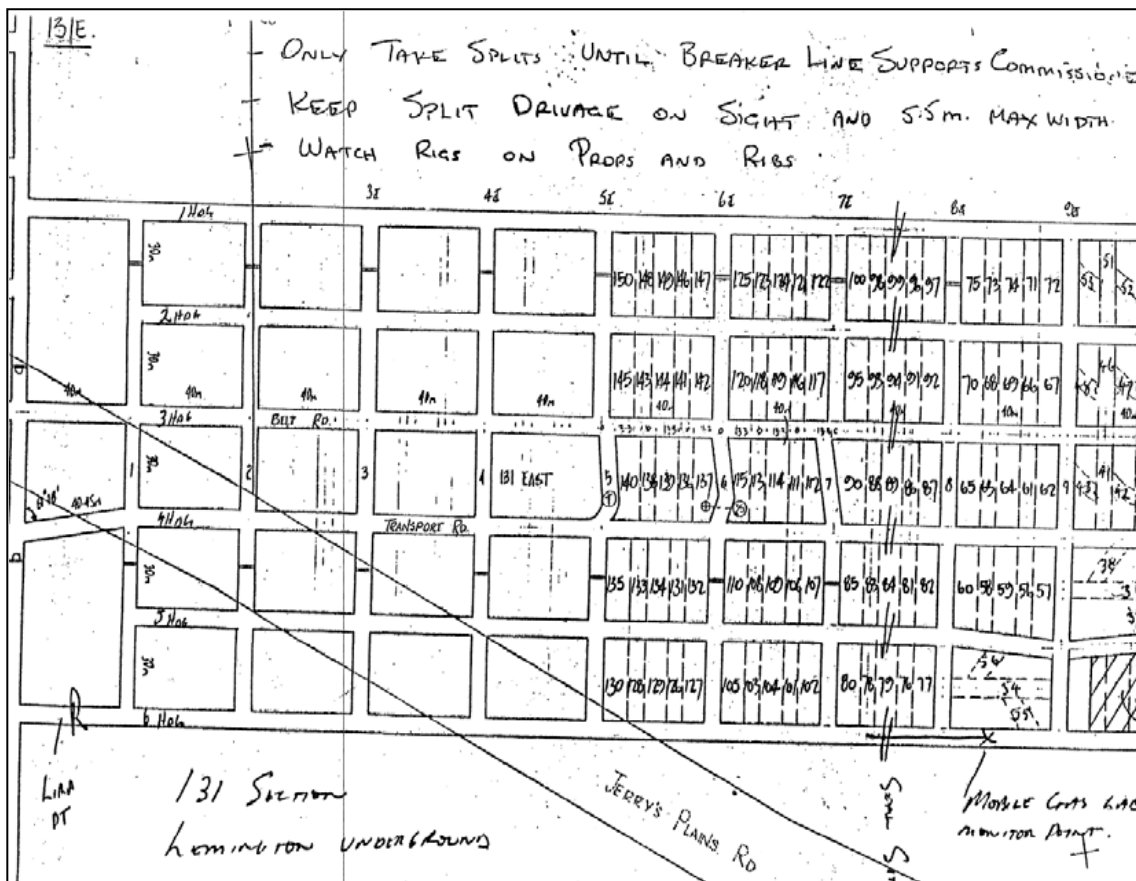 131E.
- ONLY TAKE SPLITS UNTIL BREAKER LINE SUPPORTS COMMISSIONE
- KEEP SPLIT DRIVAGE ON SIGHT AND 5.5m. MAX WIDTH
- WATCH RIGS ON PROPS AND RIBS.
1 HDG
30m
150 148 149 146 147
125 123 124 121 122
100 98 99 96 97
75 73 74 71 72
51
53 52
2 HDG
30m
145 143 144 141 142
120 118 119 116 117
95 93 94 91 92
70 68 69 66 67
46
47
40m 40m 40m 40m 40m 40m 40m 40m 40m
3 HDG
BELT RD.
30m
1 2 3 4 131 EAST 5
140 138 139 136 137
6
115 113 114 111 112
7
90 88 89 86 87
8
65 63 64 61 62
9
41
43 42
40.45m
4 HDG
TRANSPORT RD.
30m
135 133 134 131 132
110 108 109 106 107
85 83 84 81 82
60 58 59 56 57
38
5 HDG
30m
130 128 129 126 127
105 103 104 101 102
80 78 79 76 77
54
55
6 HDG
LIRA
PT
131 SECTION
LEMINGTON UNDERGROUND
JERRY'S PLAINS RD
MOBILE GAS
MONITOR POINT.